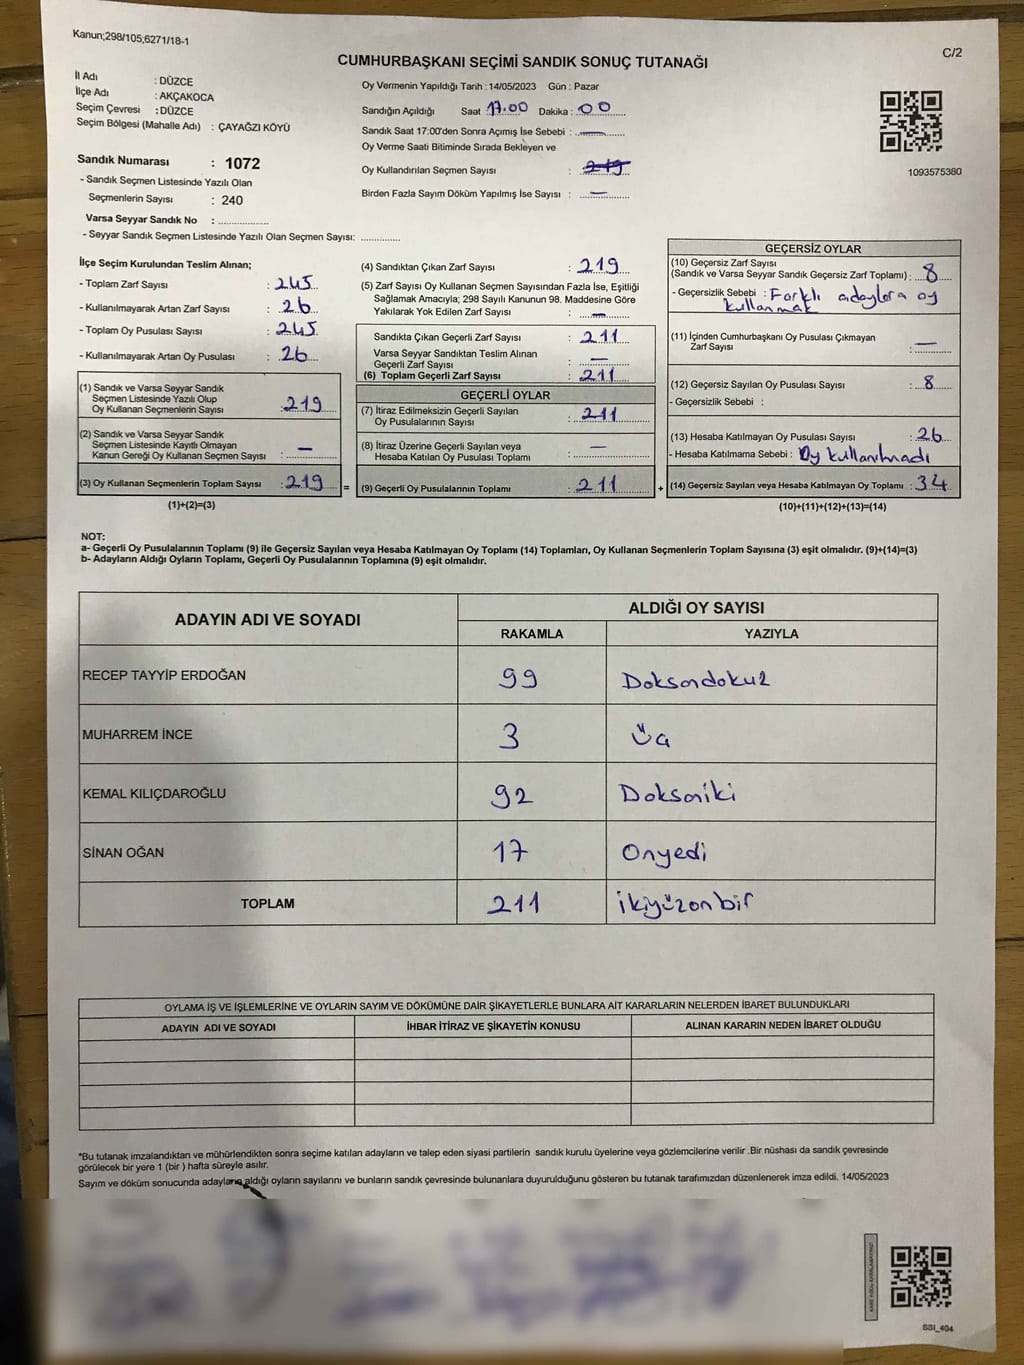 Kanun;298/105;6271/18-1
C/2
CUMHURBAŞKANI SEÇİMİ SANDIK SONUÇ TUTANAĞI
İl Adı : DÜZCE
İlçe Adı : AKÇAKOCA
Seçim Çevresi : DÜZCE
Seçim Bölgesi (Mahalle Adı) : ÇAYAĞZI KÖYÜ
Sandık Numarası : 1072
- Sandık Seçmen Listesinde Yazılı Olan
Seçmenlerin Sayısı : 240
Varsa Seyyar Sandık No : ..............
- Seyyar Sandık Seçmen Listesinde Yazılı Olan Seçmen Sayısı: ..............
Oy Vermenin Yapıldığı Tarih : 14/05/2023 Gün : Pazar
Sandığın Açıldığı Saat 17.00 Dakika : 00
Sandık Saat 17:00'den Sonra Açımış İse Sebebi : —
Oy Verme Saati Bitiminde Sırada Bekleyen ve
Oy Kullandırılan Seçmen Sayısı : 219
Birden Fazla Sayım Döküm Yapılmış İse Sayısı : —
1093575380
İlçe Seçim Kurulundan Teslim Alınan;
- Toplam Zarf Sayısı : 245
- Kullanılmayarak Artan Zarf Sayısı : 26
- Toplam Oy Pusulası Sayısı : 245
- Kullanılmayarak Artan Oy Pusulası : 26
(1) Sandık ve Varsa Seyyar Sandık
Seçmen Listesinde Yazılı Olup
Oy Kullanan Seçmenlerin Sayısı : 219
(2) Sandık ve Varsa Seyyar Sandık
Seçmen Listesinde Kayıtlı Olmayan
Kanun Gereği Oy Kullanan Seçmen Sayısı : —
(3) Oy Kullanan Seçmenlerin Toplam Sayısı : 219 =
(1)+(2)=(3)
(4) Sandıktan Çıkan Zarf Sayısı : 219
(5) Zarf Sayısı Oy Kullanan Seçmen Sayısından Fazla İse, Eşitliği
Sağlamak Amacıyla; 298 Sayılı Kanunun 98. Maddesine Göre
Yakılarak Yok Edilen Zarf Sayısı : —
Sandıkta Çıkan Geçerli Zarf Sayısı : 211
Varsa Seyyar Sandıktan Teslim Alınan
Geçerli Zarf Sayısı : —
(6) Toplam Geçerli Zarf Sayısı : 211
GEÇERLİ OYLAR
(7) İtiraz Edilmeksizin Geçerli Sayılan
Oy Pusulalarının Sayısı : 211
(8) İtiraz Üzerine Geçerli Sayılan veya
Hesaba Katılan Oy Pusulası Toplamı : —
(9) Geçerli Oy Pusulalarının Toplamı : 211 +
GEÇERSİZ OYLAR
(10) Geçersiz Zarf Sayısı
(Sandık ve Varsa Seyyar Sandık Geçersiz Zarf Toplamı) : 8
- Geçersizlik Sebebi : Farklı adaylara oy
kullanmak
(11) İçinden Cumhurbaşkanı Oy Pusulası Çıkmayan
Zarf Sayısı : —
(12) Geçersiz Sayılan Oy Pusulası Sayısı : 8
- Geçersizlik Sebebi :
(13) Hesaba Katılmayan Oy Pusulası Sayısı : 26
- Hesaba Katılmama Sebebi : Oy kullanılmadı
(14) Geçersiz Sayılan veya Hesaba Katılmayan Oy Toplamı : 34
(10)+(11)+(12)+(13)=(14)
NOT:
a- Geçerli Oy Pusulalarının Toplamı (9) ile Geçersiz Sayılan veya Hesaba Katılmayan Oy Toplamı (14) Toplamları, Oy Kullanan Seçmenlerin Toplam Sayısına (3) eşit olmalıdır. (9)+(14)=(3)
b- Adayların Aldığı Oyların Toplamı, Geçerli Oy Pusulalarının Toplamına (9) eşit olmalıdır.
ADAYIN ADI VE SOYADI ALDIĞI OY SAYISI
RAKAMLA YAZIYLA
RECEP TAYYİP ERDOĞAN 99 Doksandokuz
MUHARREM İNCE 3 Üç
KEMAL KILIÇDAROĞLU 92 Doksaniki
SİNAN OĞAN 17 Onyedi
TOPLAM 211 ikiyüzonbir
OYLAMA İŞ VE İŞLEMLERİNE VE OYLARIN SAYIM VE DÖKÜMÜNE DAİR ŞİKAYETLERLE BUNLARA AİT KARARLARIN NELERDEN İBARET BULUNDUKLARI
ADAYIN ADI VE SOYADI İHBAR İTİRAZ VE ŞİKAYETİN KONUSU ALINAN KARARIN NEDEN İBARET OLDUĞU
*Bu tutanak imzalandıktan ve mühürlendikten sonra seçime katılan adayların ve talep eden siyasi partilerin sandık kurulu üyelerine veya gözlemcilerine verilir .Bir nüshası da sandık çevresinde
görülecek bir yere 1 (bir ) hafta süreyle asılır.
Sayım ve döküm sonucunda adayların aldığı oyların sayılarını ve bunların sandık çevresinde bulunanlara duyurulduğunu gösteren bu tutanak tarafımızdan düzenlenerek imza edildi. 14/05/2023
SSI_404